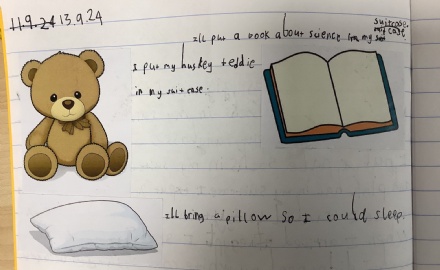 11.9.24 13.9.24
suitcase.
Ill put a book about science in my suit case
I put my huskey teddie
in my suit case.
Ill bring a pillow so I could sleep.